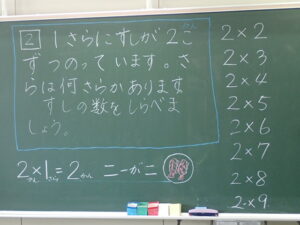 2 1さらにすしが2こ
ずつのっています。さ
らは何さらかあります
すしの数をしらべま
しょう。
2×1=2 二一が二
2×2
2×3
2×4
2×5
2×6
2×7
2×8
2×9